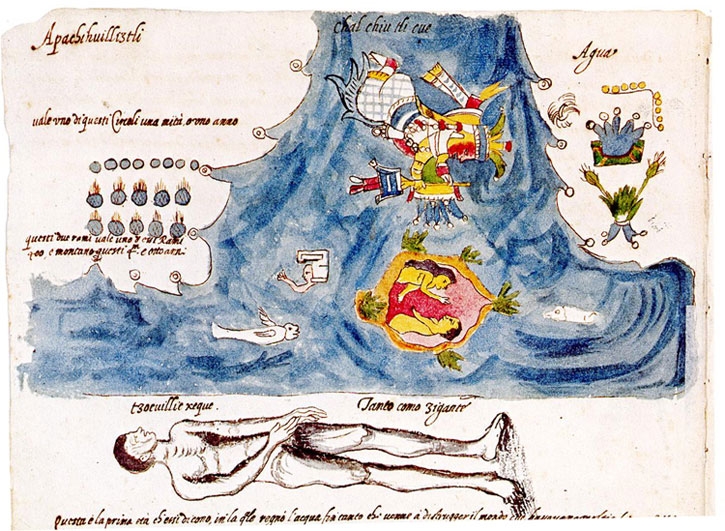 Apachihuilliztli
Chal chiu tli cue
Agua
uale uno di questi Circoli una mità, o uno anno
questi due rami vale uno
400 e montano questi e otto anni
tzocuillicxeque.
Tanto como gigante
Questa è la prima età ch'essi dicono, in la q̃le regnò l'acqua fin tanto che venne à distrugger il mondo